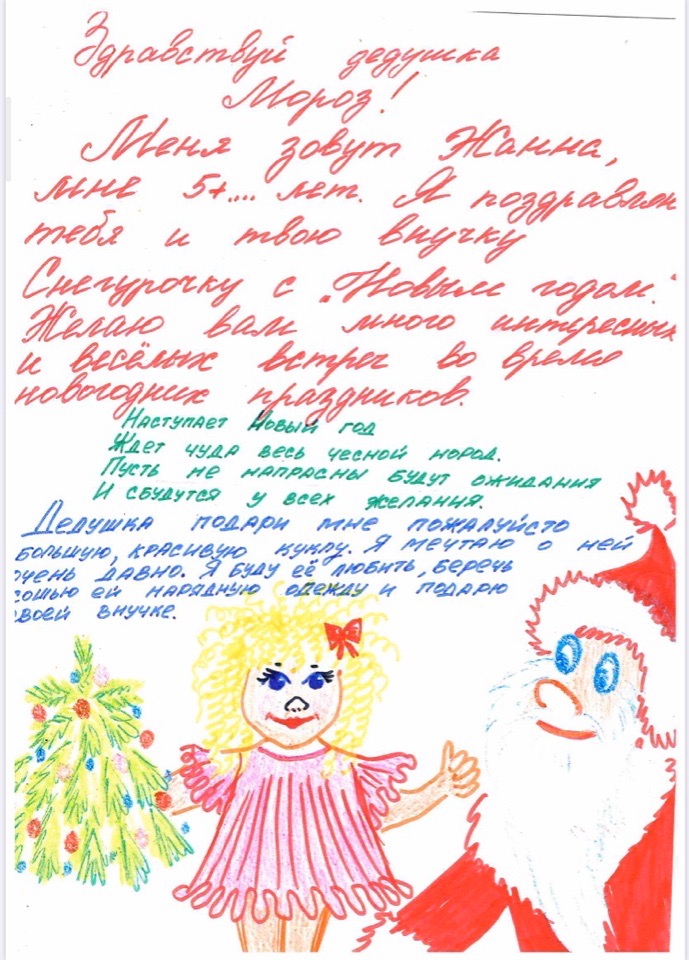 Здравствуй дедушка
Мороз!
Меня зовут Жанна,
мне 5+.... лет. Я поздравляю
тебя и твою внучку
Снегурочку с „Новым годом".
Желаю вам много интересных
и весёлых встреч во время
новогодних праздников.
Наступает Новый год
Ждет чуда весь чесной нород.
Пусть не напрасны будут ожидания
И сбудутся у всех желания.
Дедушка подари мне пожалуйсто
большую, красивую куклу. Я мечтаю о ней
очень давно. Я буду её любить, беречь
сошью ей нарядную одежду и подарю
своей внучке.